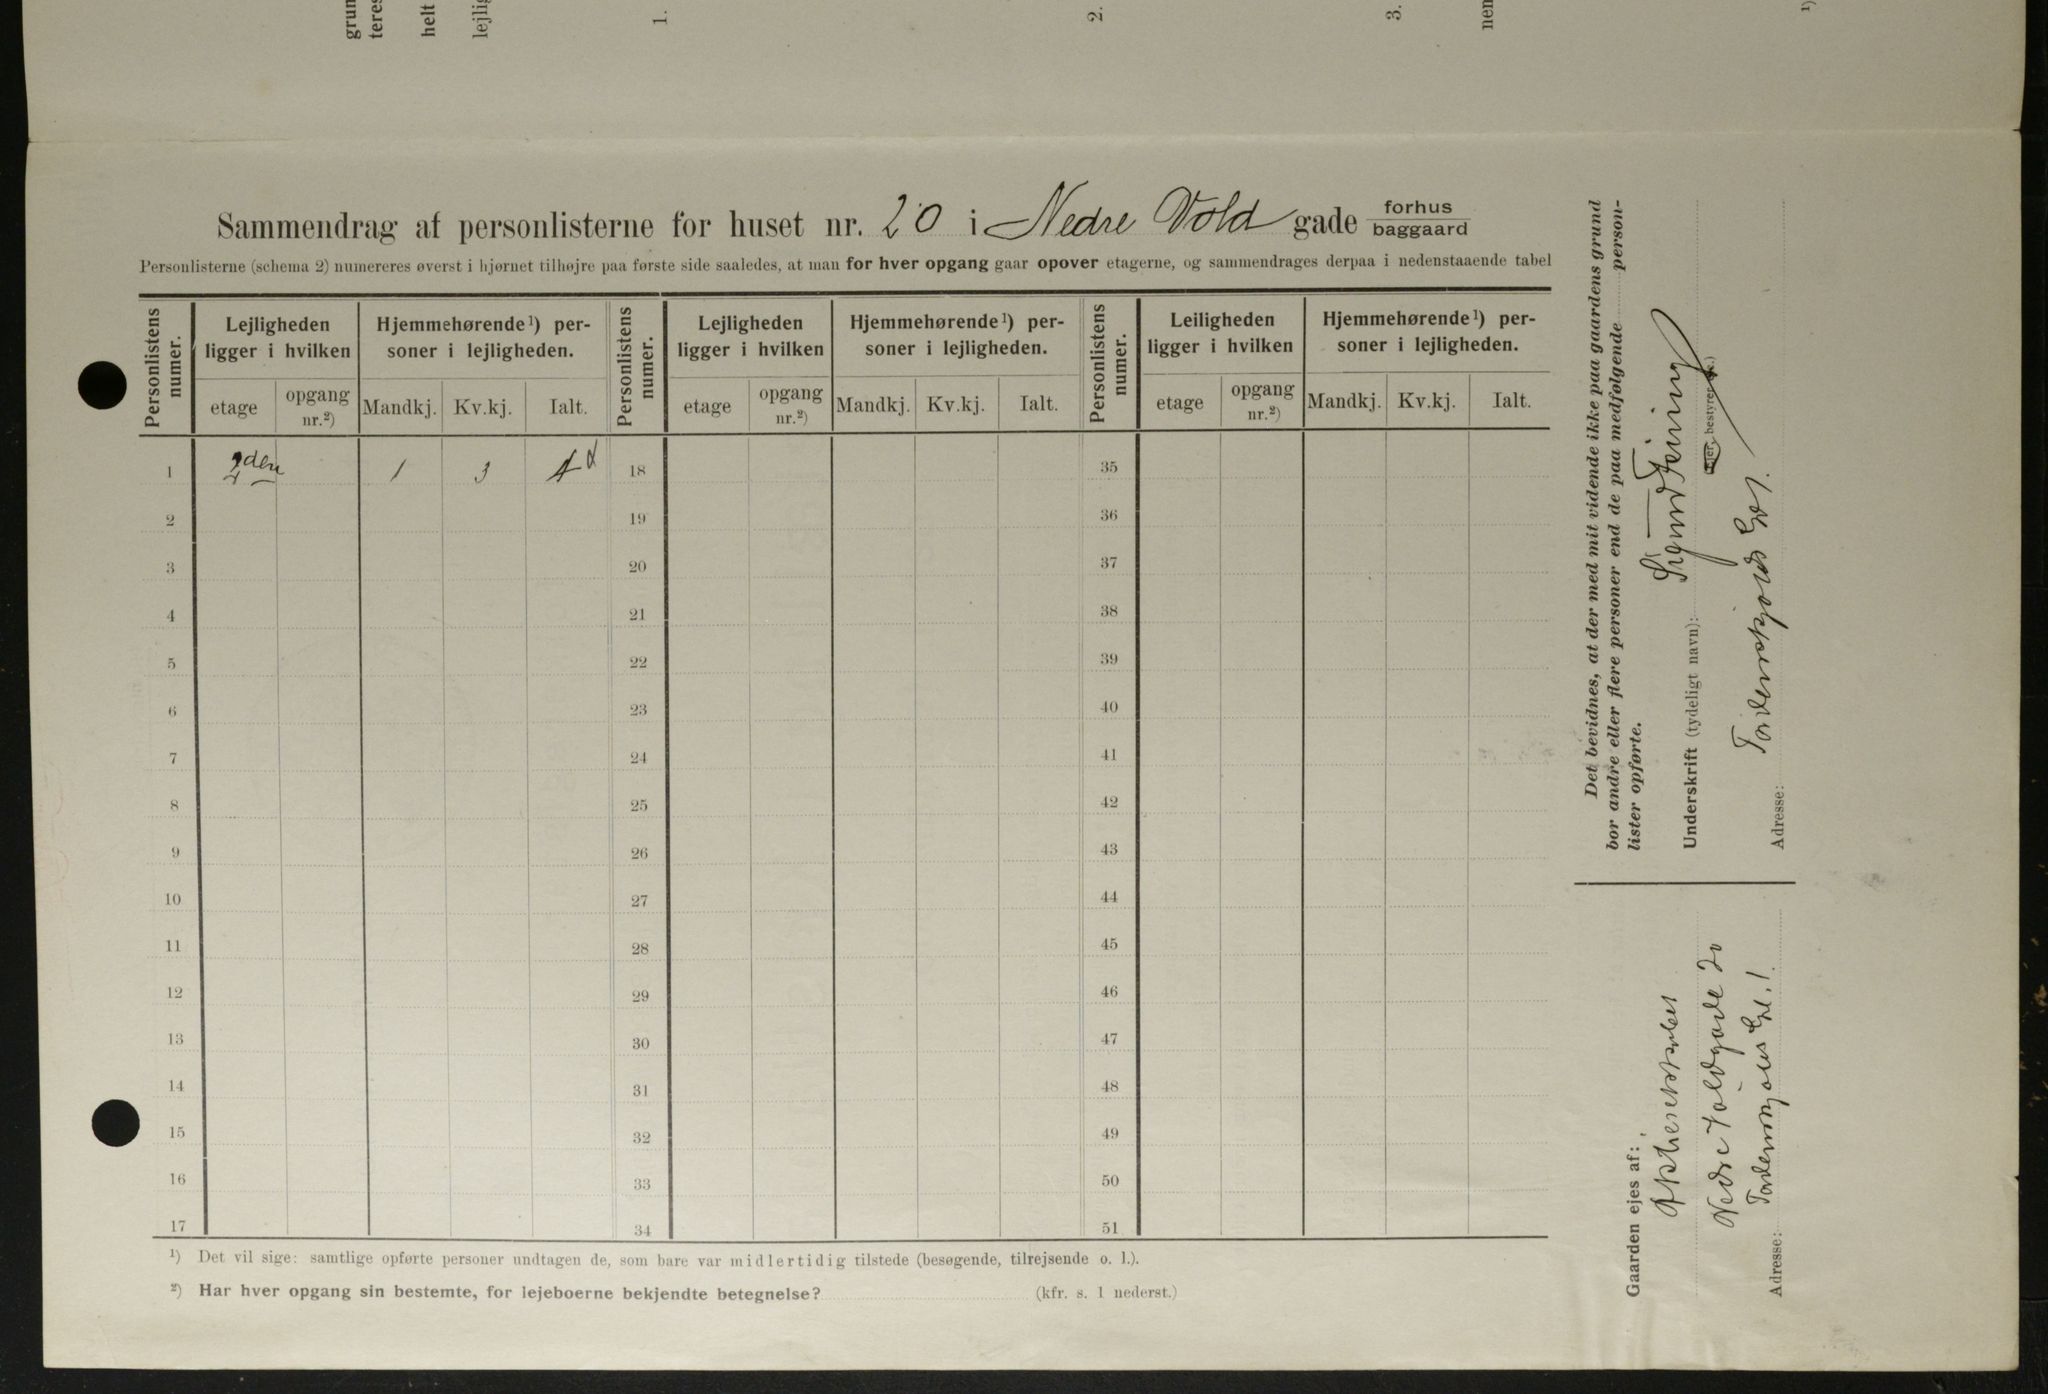 grun
teres
helt
lejlig
1.
2.
3.
nen
1)
Sammendrag af personlisterne for huset nr. 20 i Nedre Vold gade forhus
baggaard
Personlisterne (schema 2) numereres øverst i hjørnet tilhøjre paa første side saaledes, at man for hver opgang gaar opover etagerne, og sammendrages derpaa i nedenstaaende tabel
Personlistens numer. Lejligheden ligger i hvilken Hjemmehørende ¹) personer i lejligheden. Personlistens numer. Lejligheden ligger i hvilken Hjemmehørende ¹) personer i lejligheden. Personlistens numer. Leiligheden ligger i hvilken Hjemmehørende ¹) personer i lejligheden.
etage opgang nr.²) Mandkj. Kv.kj. Ialt. etage opgang nr.²) Mandkj. Kv.kj. Ialt. etage opgang nr.²) Mandkj. Kv.kj. Ialt.
1 2den 1 3 4 18 35
2 19 36
3 20 37
4 21 38
5 22 39
6 23 40
7 24 41
8 25 42
9 26 43
10 27 44
11 28 45
12 29 46
13 30 47
14 31 48
15 32 49
16 33 50
17 34 51
¹) Det vil sige: samtlige opførte personer undtagen de, som bare var midlertidig tilstede (besøgende, tilrejsende o. l.).
²) Har hver opgang sin bestemte, for lejeboerne bekjendte betegnelse? (kfr. s. 1 nederst.)
Det bevidnes, at der med mit vidende ikke paa gaardens grund
bor andre eller flere personer end de paa medfølgende person-
lister opførte.
Underskrift (tydeligt navn):
bestyrer
Adresse: Tordenskjolds Gd 1.
Gaarden ejes af:
Nedre Voldgade 20
Adresse: Tordenskjolds Gd. 1.